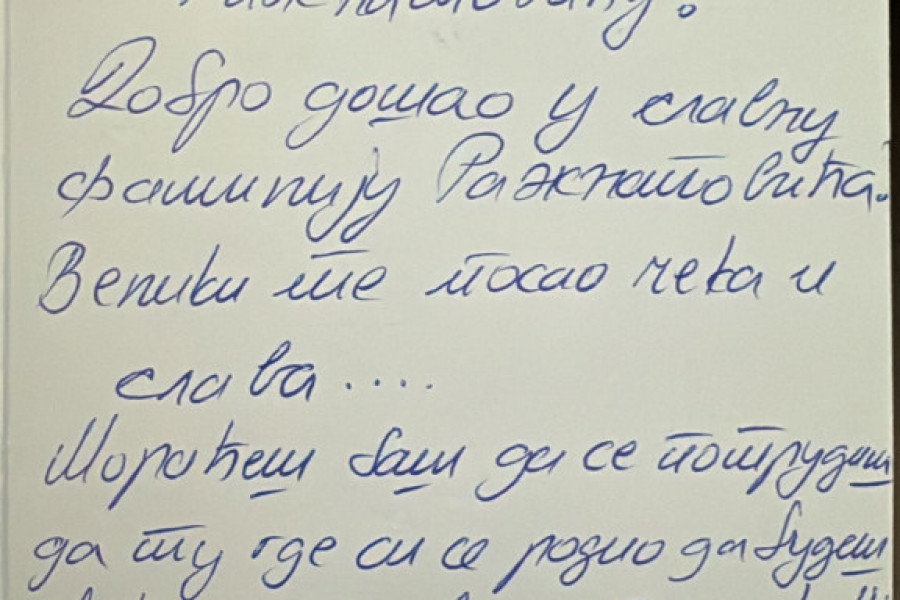 Добро дошао у славну
фамилију Ражнатовића.
Велики те посао чека и
слава....
Мораћеш баш да се потрудиш
да ту где си се родио да будеш